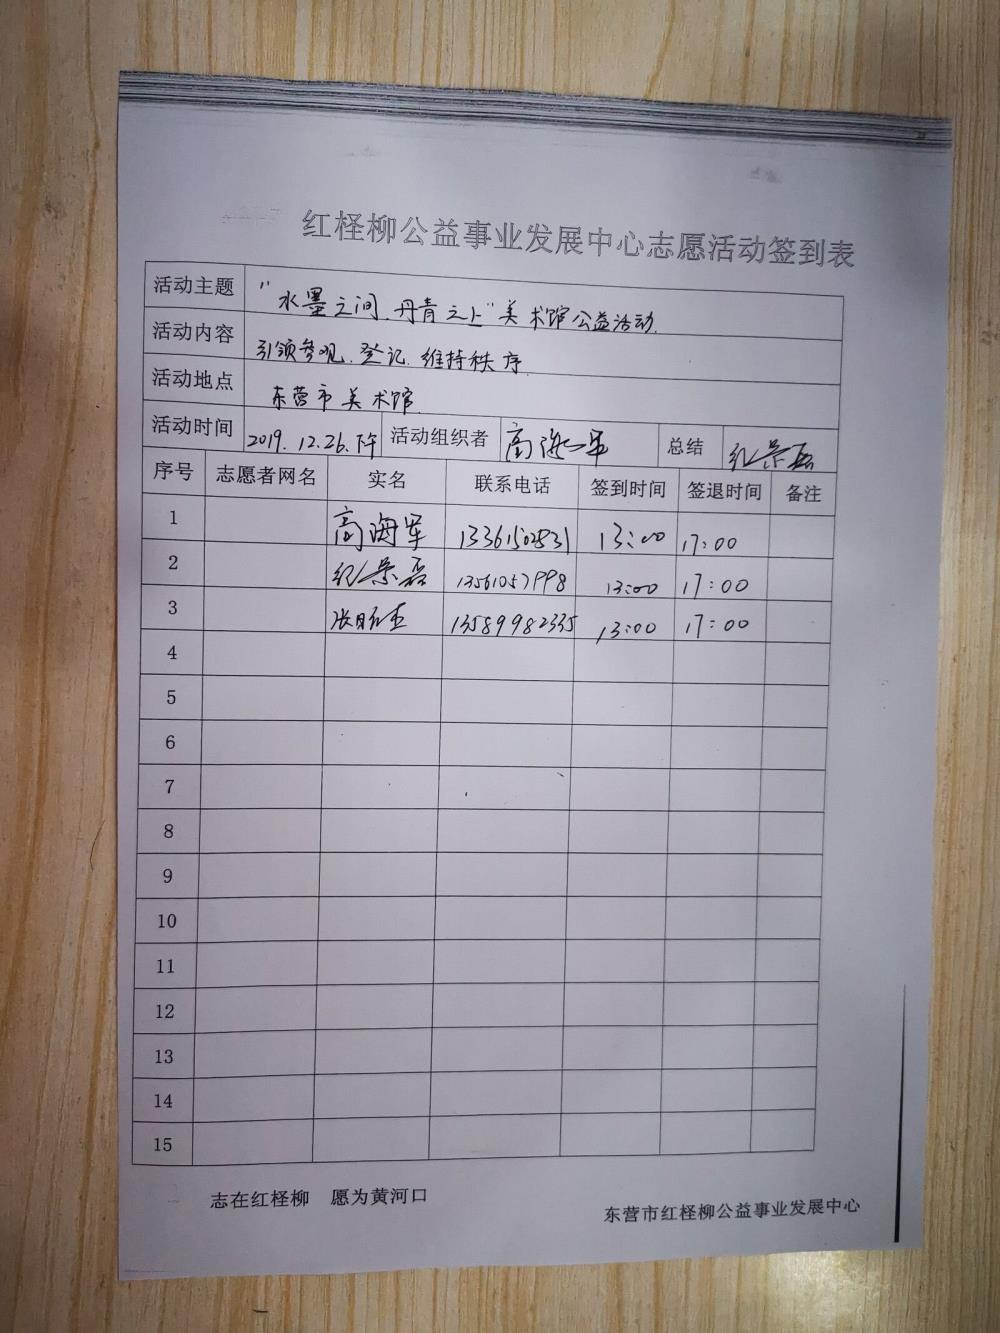 红柽柳公益事业发展中心志愿活动签到表
活动主题 "水墨之间.丹青之上"美术馆公益活动.
活动内容 引领参观.登记.维持秩序.
活动地点 东营市美术馆.
活动时间 2019.12.26.下午 活动组织者 高海军 总结 纪景磊
序号 志愿者网名 实名 联系电话 签到时间 签退时间 备注
1 高海军 13361502831 13:00 17:00
2 纪景磊 13561057998 13:00 17:00
3 13589982335 13:00 17:00
4
5
6
7
8
9
10
11
12
13
14
15
志在红柽柳 愿为黄河口
东营市红柽柳公益事业发展中心